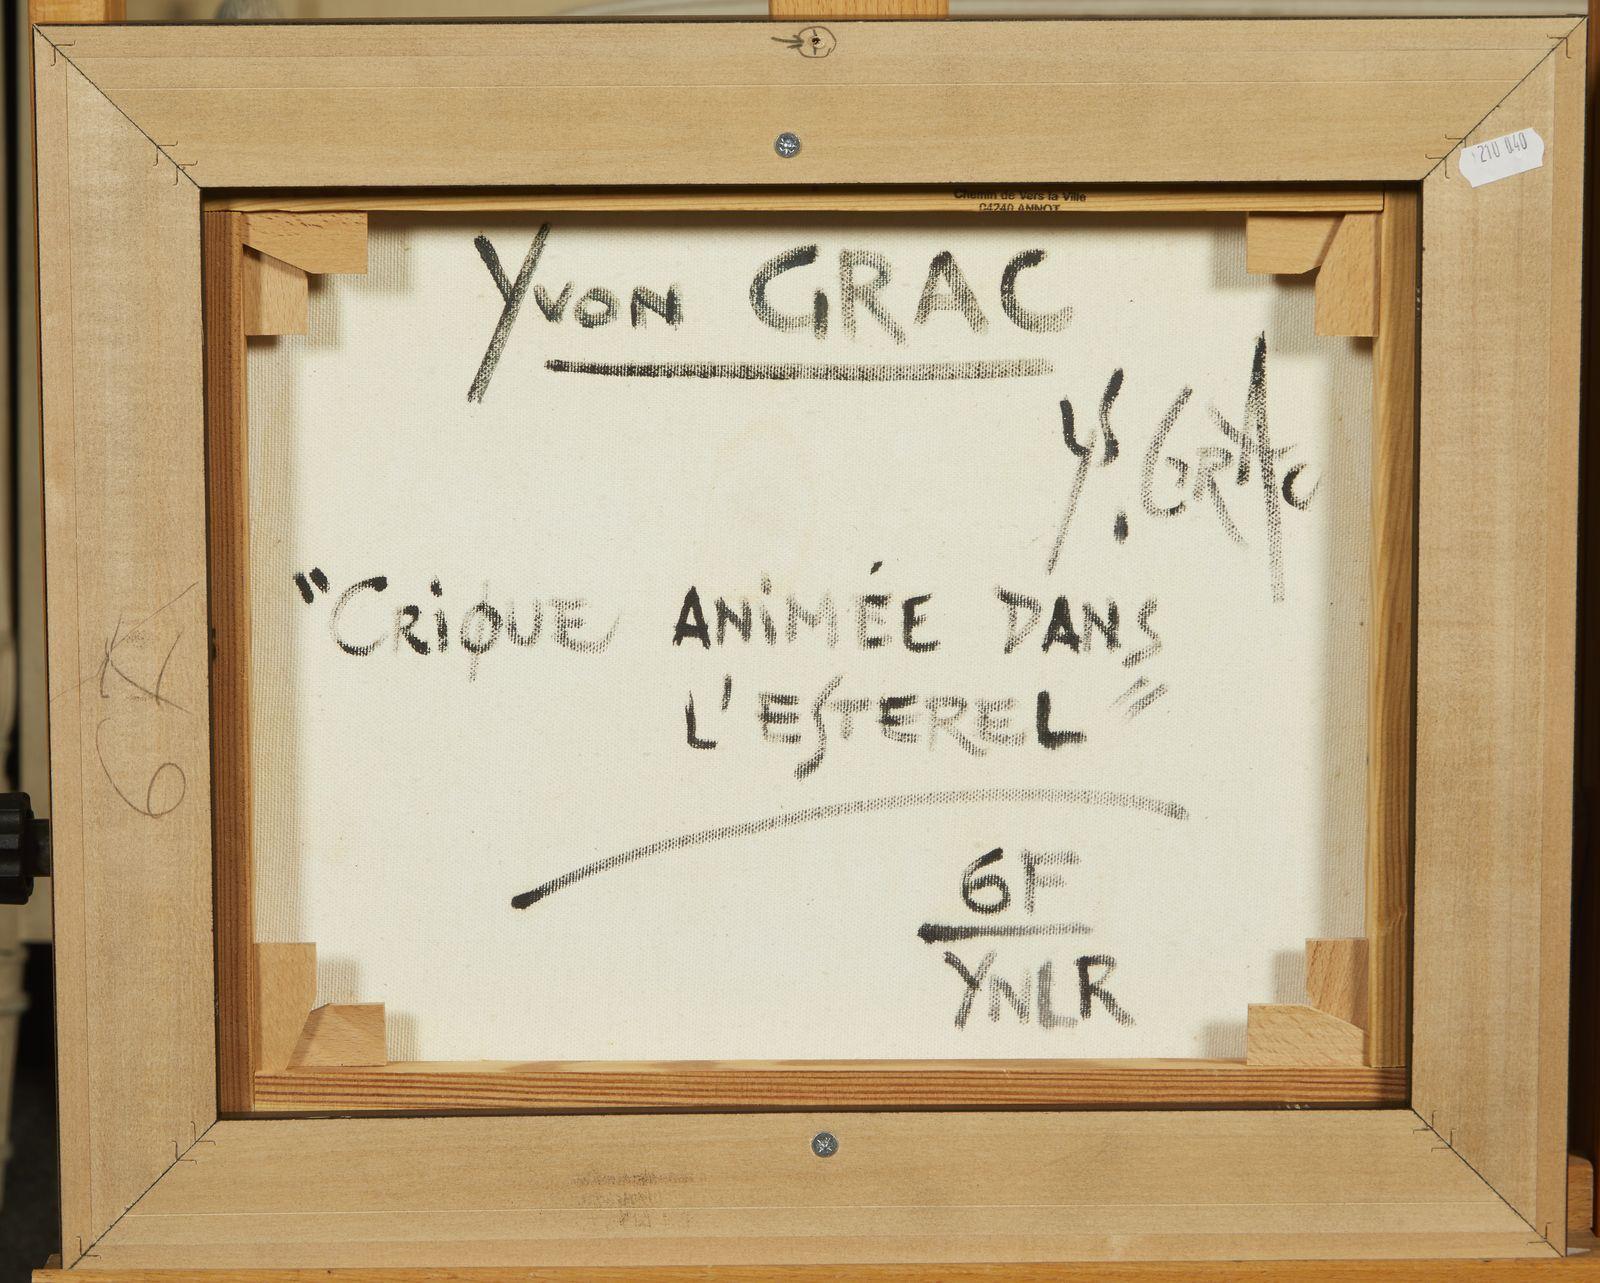 210 040
Chemin de Vers la Ville
04240 ANNOT
Yvon GRAC
Y. GRAC
"CRiQUE ANiMÉE DANS
L'ESTEREL"
6F
YNLR
6X